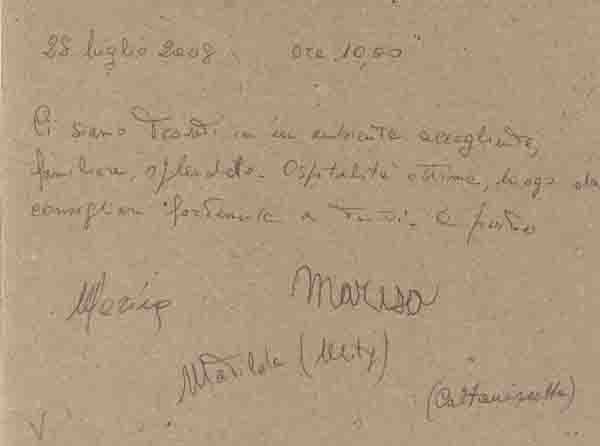 28 luglio 2008 ore 10,00
Ci siamo trovati in un ambiente accogliente,
familiare, splendido. Ospitalità ottima, luogo da
consigliare fortemente a tutti. E
Maria Marisa
Matilde (Mity)
(Caltanissetta)